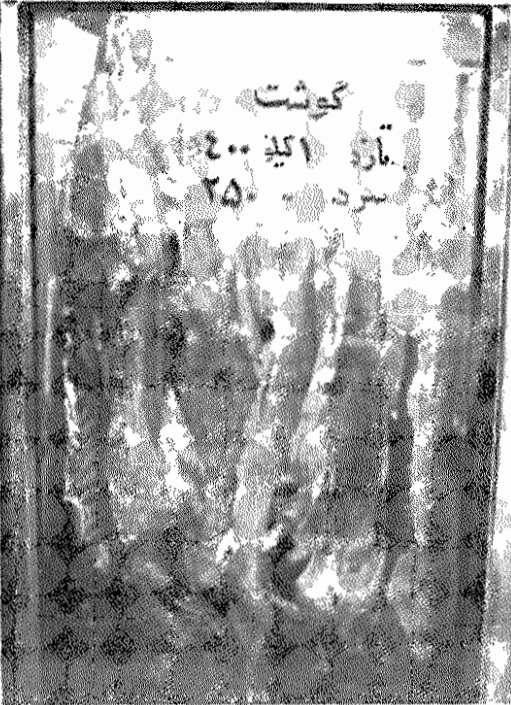 گوشت
تازه ۱ کیلو ۴۰۰
سرد - ۲۵۰